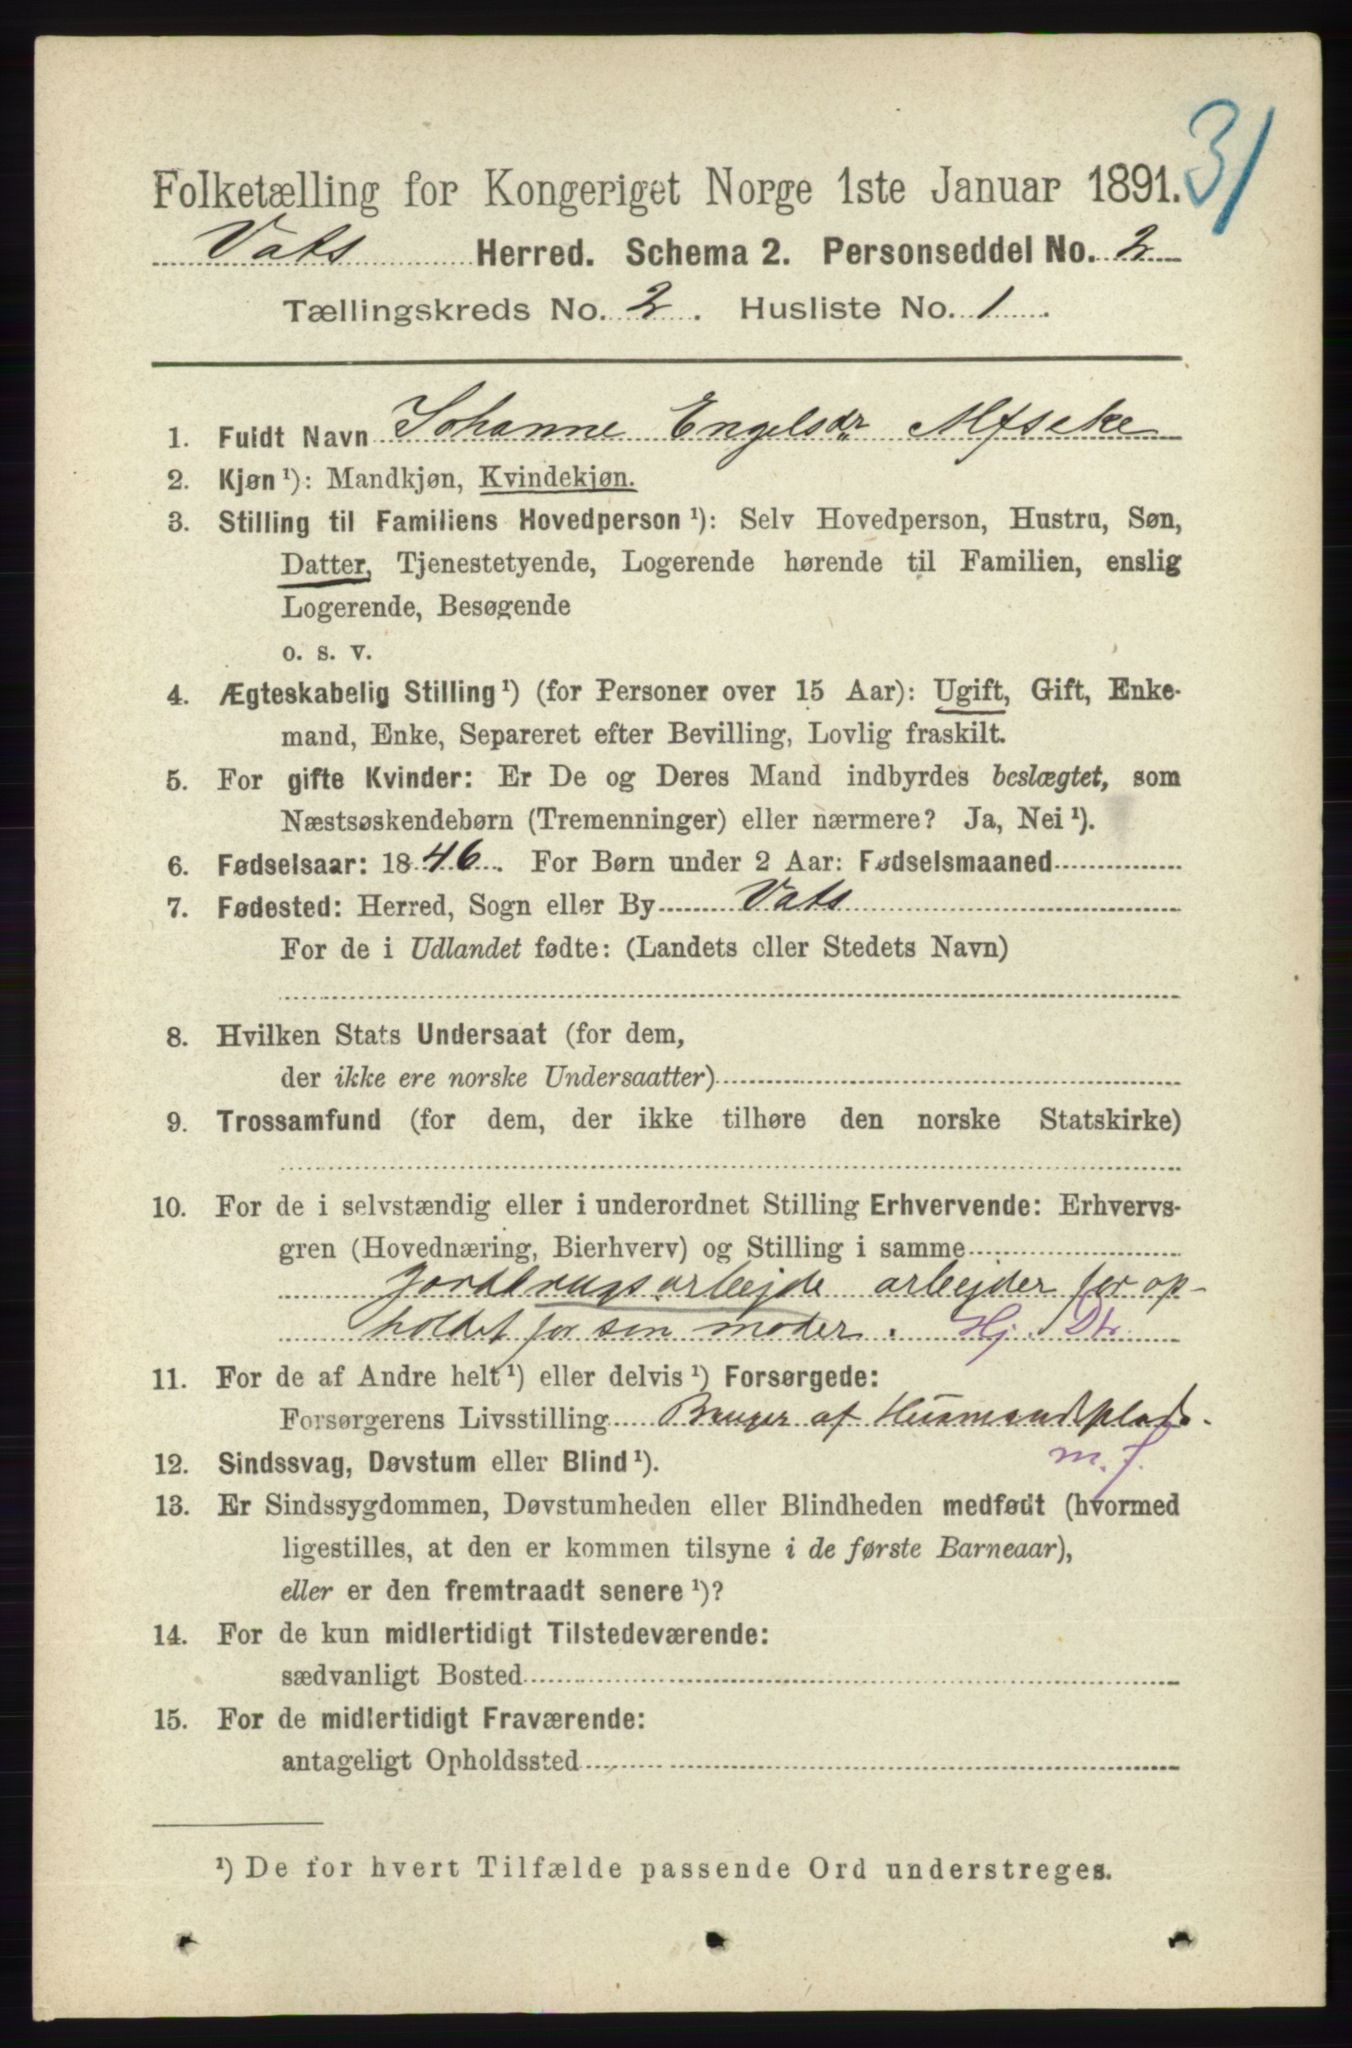 31
Folketælling for Kongeriget Norge 1ste Januar 1891.
Vats Herred. Schema 2. Personseddel No. 2
Tællingskreds No. 2. Husliste No. 1.
1. Fuldt Navn Johanne Engelsdr.
2. Kjøn ¹): Mandkjøn, Kvindekjøn.
3. Stilling til Familiens Hovedperson ¹): Selv Hovedperson, Hustru, Søn,
Datter, Tjenestetyende, Logerende hørende til Familien, enslig
Logerende, Besøgende
o. s. v.
4. Ægteskabelig Stilling ¹) (for Personer over 15 Aar): Ugift, Gift, Enke-
mand, Enke, Separeret efter Bevilling, Lovlig fraskilt.
5. For gifte Kvinder: Er De og Deres Mand indbyrdes beslægtet, som
Næstsøskendebørn (Tremenninger) eller nærmere? Ja, Nei ¹).
6. Fødselsaar: 1846. For Børn under 2 Aar: Fødselsmaaned
7. Fødested: Herred, Sogn eller By Vats
For de i Udlandet fødte: (Landets eller Stedets Navn)
8. Hvilken Stats Undersaat (for dem,
der ikke ere norske Undersaatter)
9. Trossamfund (for dem, der ikke tilhøre den norske Statskirke)
10. For de i selvstændig eller i underordnet Stilling Erhvervende: Erhvervs-
gren (Hovednæring, Bierhverv) og Stilling i samme
Jordbrugsarbejde arbejder for op-
holdet for sin moder. Hj. Dtr.
11. For de af Andre helt ¹) eller delvis ¹) Forsørgede:
Forsørgerens Livsstilling Bruger af Husmandsplads.
m. f.
12. Sindssvag, Døvstum eller Blind ¹).
13. Er Sindssygdommen, Døvstumheden eller Blindheden medfødt (hvormed
ligestilles, at den er kommen tilsyne i de første Barneaar),
eller er den fremtraadt senere ¹)?
14. For de kun midlertidigt Tilstedeværende:
sædvanligt Bosted
15. For de midlertidigt Fraværende:
antageligt Opholdssted
¹) De for hvert Tilfælde passende Ord understreges.